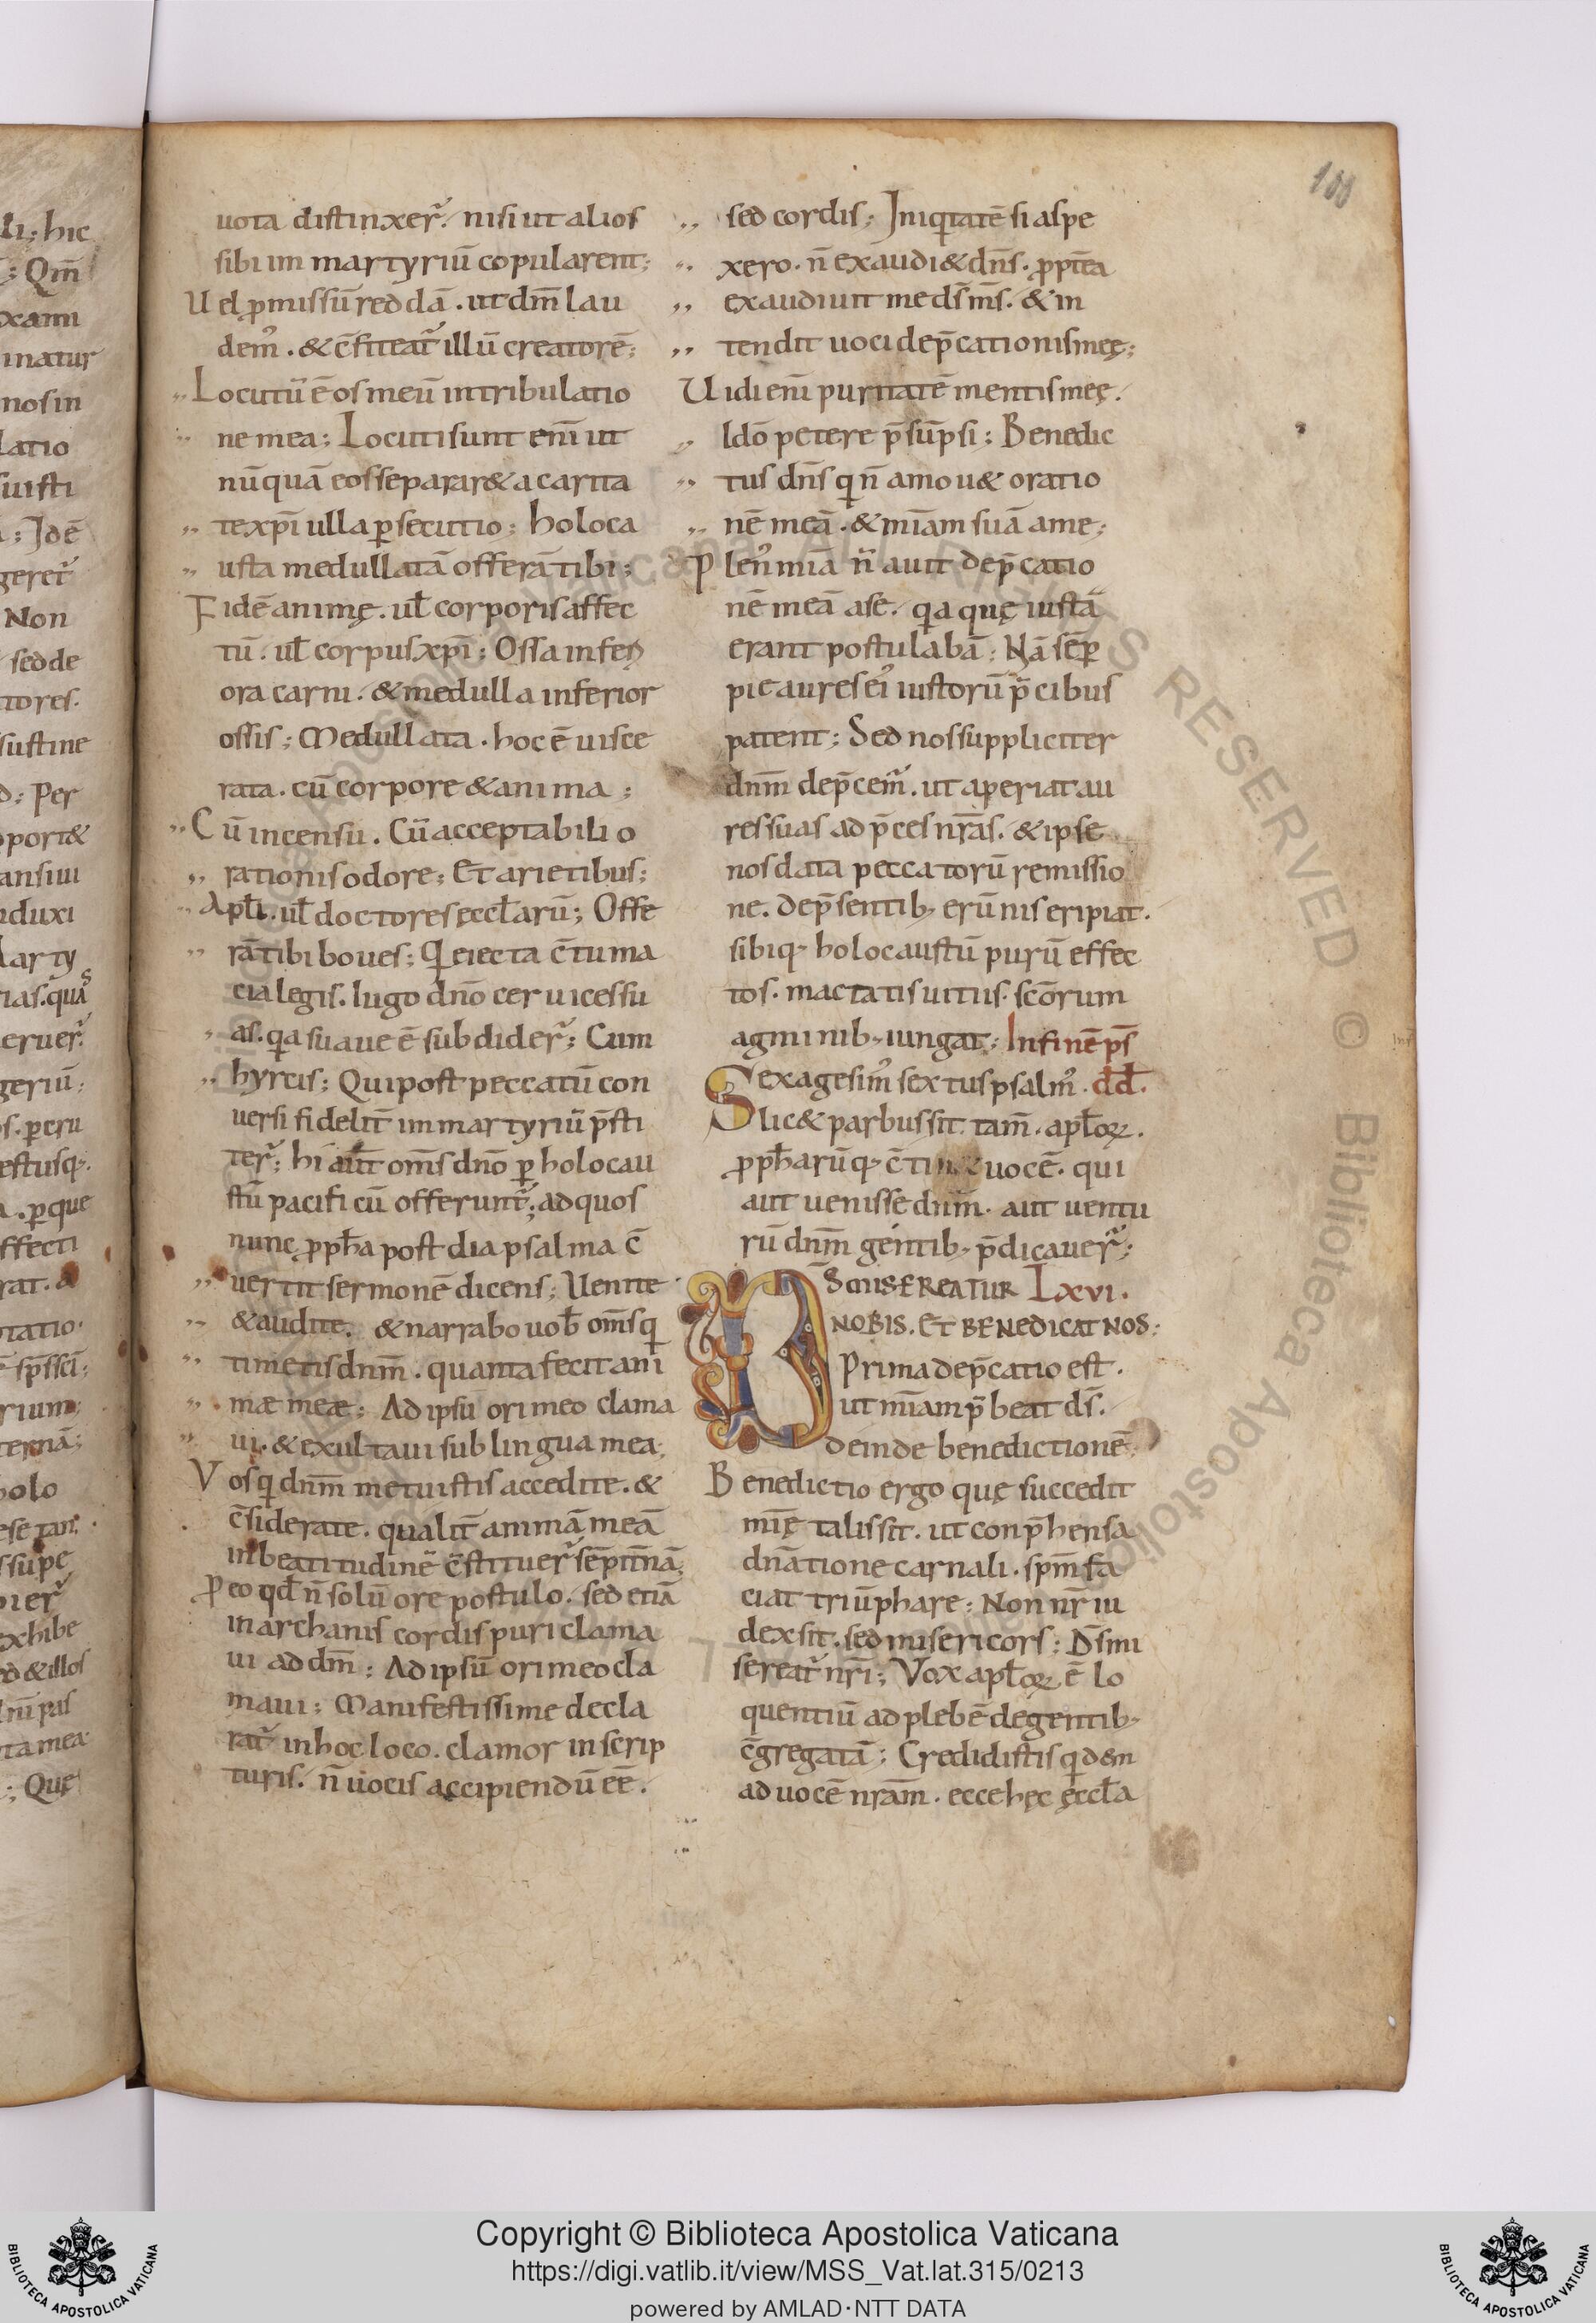 li; hic
; Qm̄
xami
inatur
nos in
latio
uisti
; Idē
gerer̃
Non
sed de
tores.
sustine
; Per
port&
ansiui
duxi
arty
ias. quas
eruer̃
geriū;
s. peru
estusq;
. perque
ffecti
rat. a
tatio
rium;
ternā;
olo
ese tan
ssupe
pier̃
exhibe
d & illos
ta mea
; Quę
100
uota distinxer̃. nisi ut alios
sibi im martyriū copularent;
Uel ꝓmissū reddā. ut dm̄ lau
dem᷒. & c̄fiteat᷒ illū creatorē;
Locutū ē os meū in tribulatio
ne mea; Locuti sunt enī ut
nūquā eos separar& a carita
te xp̄i ulla ꝑsecutio; holoca
usta medullatā offerā tibi;
Fidē animę. ul̄ corporis affec
tū. ul̄ corpus xp̄i; Ossa infeꝛi
ora carni. & medulla inferior
ossis; Medullata. hoc ē uisce
rata. cū corpore & anima;
Cū incensu. Cū acceptabili o
rationis odore; Et arietibus;
Apl̄i. ul̄ doctores ęccl̄arū; Offe
rā tibi boues; Qui eiecta c̄tuma
cia legis. iugo dn̄o ceruices su
as. qa suaue ē subdider̃; Cum
hyrcis; Qui post peccatū con
uersi fidelit̄ im martyriū p̄sti
ter̃; hi aut̄ om̄s dn̄o ꝑ holocau
stū pacificū offerunt᷒; ad quos
nunc ꝓph̄a post diapsalma c̄
uertit sermonē dicens; Uenite
& audite. & narrabo uob̄ om̄s q
timetis dnm̄. quanta fecit ani
mæ meæ; Ad ipsū ori meo clama
ui. & exultaui sub lingua mea;
Vos q dnm̄ metuistis accedite. &
c̄siderate. qualit̄ animā meā
in beatitudinē c̄stituer̃ sēpit̄nā;
Ꝓ eo qd̄ n̄ solū ore postulo. sed etiā
in archanis cordis puri clama
ui ad dm̄; Ad ipsū ori meo cla
maui; Manifestissime decla
rat᷒ in hoc loco. clamor in scrip
turis. n̄ uocis accipiendū eē.
sed cordis; Iniqtatē si aspe
xero. n̄ exaudi& dn̄s. ꝓpt̄ea
exaudiuit me ds̄ ms̄. & in
tendit uoci dep̄cationis meę;
Uidi enī puritatē mentis meę.
Idō petere p̄sūpsi; Benedic
tus dn̄s q n̄ amou& oratio
nē meā. & mīam suā a me;
Plen᷒ mīa n̄ auit dep̄catio
nē meā a se. qa quę iusta
erant postulabā; Nā sēꝑ
pie aures ei᷒ iustorū p̄cibus
patent; Sed nos suppliciter
dnm̄ dep̄cem᷒. ut aperiat au
res suas ad p̄ces nr̄as. & ipse
nos data peccatorū remissio
ne. de p̄sentib; erūnis eripiat.
sibiq; holocaustū purū effec
tos. mactatis uitiis. scōrum
agminib; iungat; In finē ps̄
Sexagesim᷒ sextus psalm᷒. dd̄.
S lic& paruus sit. tam̄. apl̄oꝝ.
ꝓph̄arūq; c̄tin& uocē. qui
aut uenisse dnm̄. aut uentu
rū dnm̄ gentib; p̄dicauer̃;
DS MISEREATUR LXVI.
NOBIS. ET BENEDICAT NOS:
Prima dep̄catio est.
ut mīam p̄beat ds̄.
deinde benedictionē;
Benedictio ergo quę succedit
mīę talis sit. ut conp̄hensa
dn̄atione carnali. spm̄ fa
ciat triūphare; Non nr̄ iu
dex sit. sed misericors; Ds̄ mi
sereat᷒ nr̄i; Vox apl̄oꝝ ē lo
quentiū ad plebē de gentib;
c̄gregatā; Credidistis qdem
ad uocē nr̄am. ecce hęc ęccl̄a
Copyright © Biblioteca Apostolica Vaticana
https://digi.vatlib.it/view/MSS_Vat.lat.315/0213
powered by AMLAD·NTT DATA
BIBLIOTECA APOSTOLICA VATICANA
BIBLIOTECA APOSTOLICA VATICANA